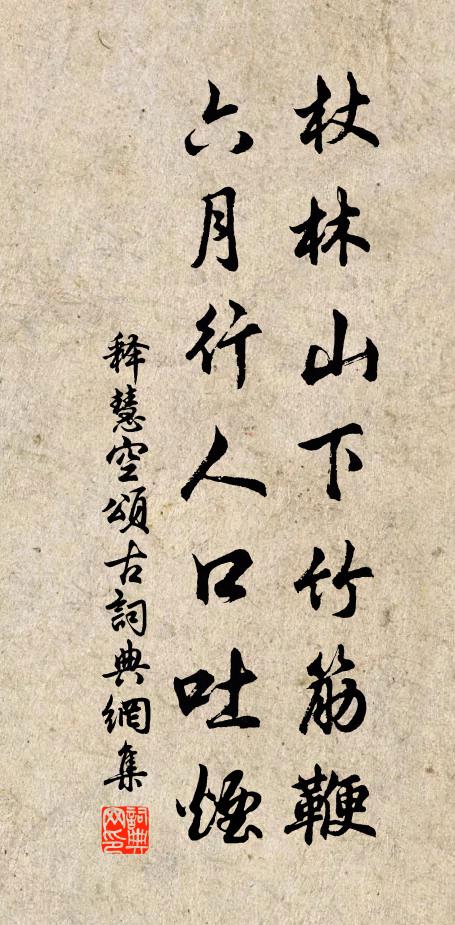 杖林山下竹筋鞭
六月行人口吐煙
释慧空頌古詞典網集
詞典网印